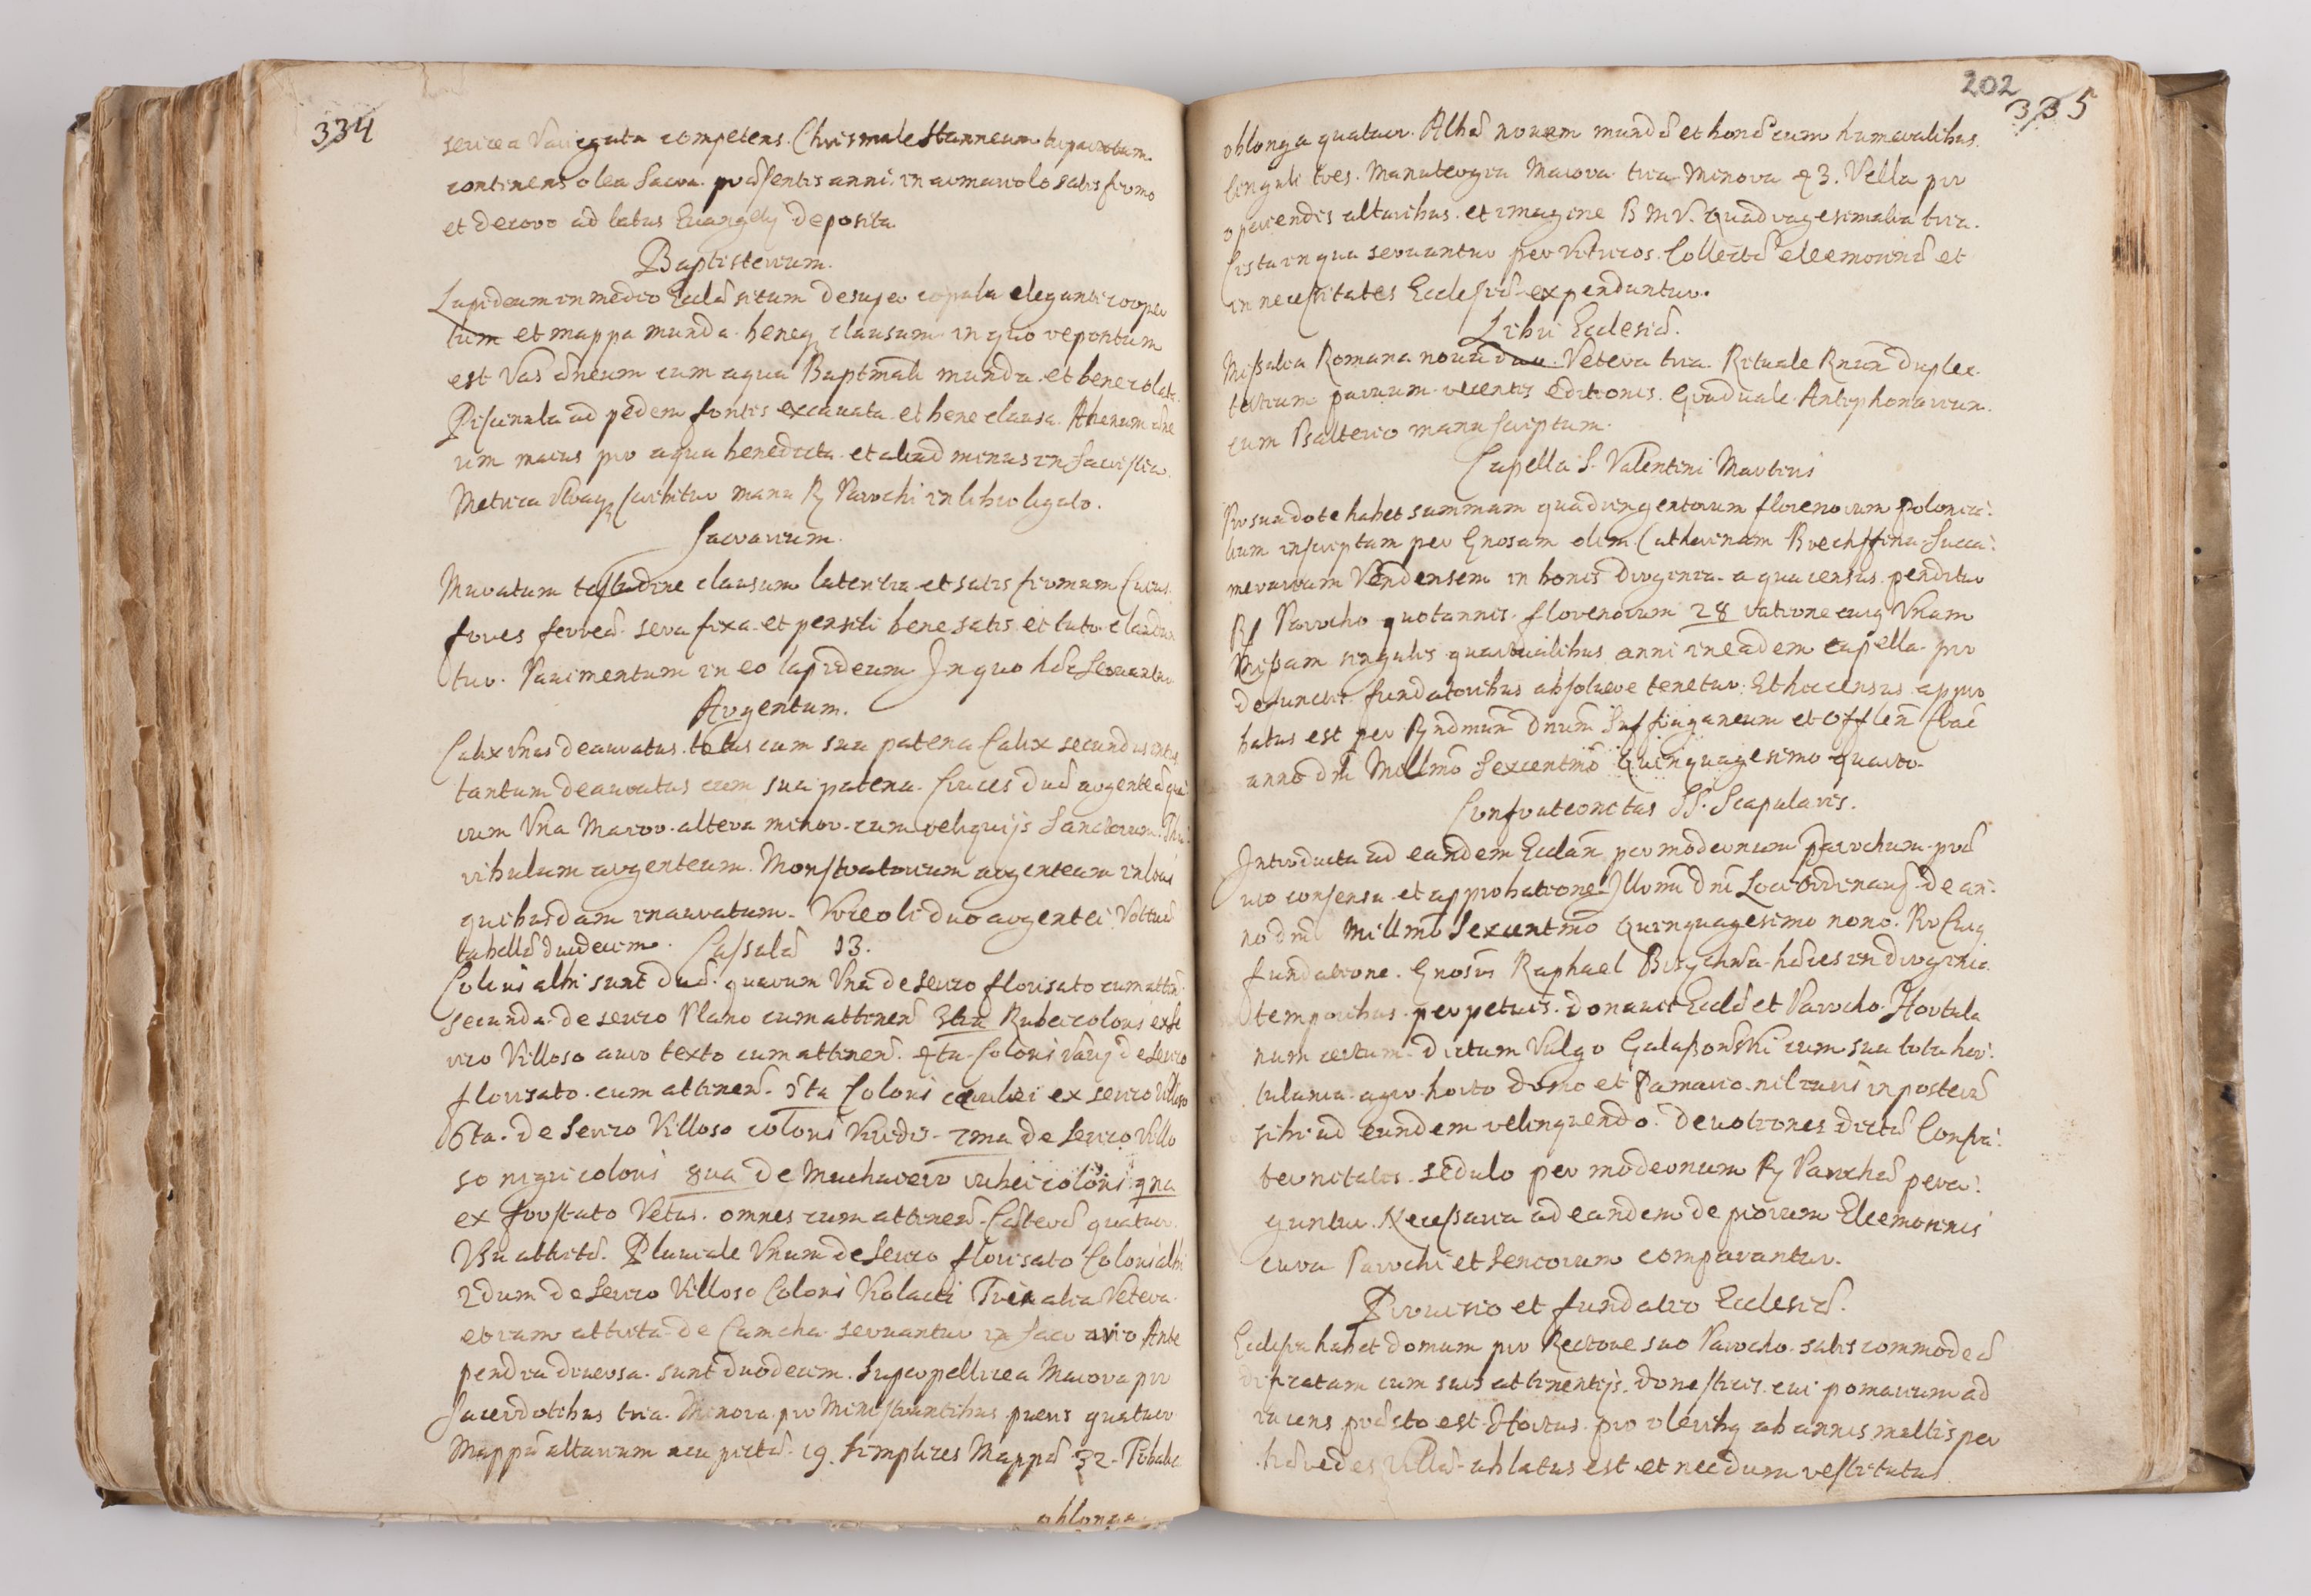 334
serica variegata competens. Chrismale stanneum tripartitum
continens olea sacra præsentis anni, in armariolo satis firmo
et decoro ad latus Euangelij deposita.
Baptisterium.
Lapideum in medio Eccłæ situm desuper copula eleganti cooper
tum et mappa munda beneq clausum in quo repositum
est Vas æneum cum aqua Baptmali munda et bene colata.
Piscinula ad pedem fontis excauata et bene clausa. Ahenum æne
um maius pro aqua benedicta et aliud minus in Sacristia.
Metrica vtraq scribitur manu R Parochi in libro ligato.
Sacrarium.
Muratum testudine clausum lateritia et satis firmum Cuius
fores ferreæ sera fixa et pensili bene satis et tuto claudun
tur. Pauimentum in eo lapideum In quo hæc seruantur
Argentum.
Calix vnus deauratus totus cum sua patena Calix secundus intus
tantum deauratus cum sua patena. Cruces duæ argenteæ qua
rum Vna Maior altera minor cum reliquijs Sanctorum. Thu
ribulum argenteum. Monstratorium argenteum in locis
quibusdam inauratum. Vrceoli duo argentei. Votiuæ
tabellæ duodecim. Cassulæ 13.
Coloris albi sunt duæ quarum Vna de serico florisato cum attin.
Secunda de serico Plano cum attinen 3tia Rubei coloris ex se
rico Villoso auro texto cum attinen. 4ta Coloris varij de serico
florisato cum attinen. 5ta Coloris cærulei ex serico Villoso
6ta de Serico Villoso coloris Viridis 7ma de serico Villo
so nigri coloris 8ua de Muchaiero rubei coloris 9na
ex frustato Vetus. omnes cum attinen. Cæteræ quatuor
Vsu attritæ. Pluuiale Vnum de Serico florisato Coloris albi
2dum de Serico Villoso Coloris Violacei Tria alia Vetera
etiam attrita de Camcha seruantur in sacrario Ante
pendia diuersa sunt duodecim. Superpellicea Maiora pro
Sacerdotibus tria. Minora pro Ministrantibus pueris quatuor
Mappæ altarium acu pictæ 19. Simplices Mappæ 32.
oblonga
202
335
oblonga quatuor. Albæ nouem mundæ et bonæ cum humeralibus.
Cinguli tres. Manutergia Maiora tria Minora 43. Vella pro
operiendis altaribus et imagine B M V. Quadragesimalia tria.
Cista in qua seruantur per Vitricos Collectæ eleemosinæ et
in necessitates Ecclesiæ expenduntur.
Libri Ecclesiæ.
Missalia Romana noua duo Vetera tria. Rituale Rnum duplex
tertium paruum recentis editionis. Graduale Antiphonarium
cum Psalterio manu scriptum.
Capella S. Valentini Martiris
Pro sua dote habet summam quadringentorum florenorum polonica
lium inscriptam per Gnosam olim Catharinam Succa
merariam Vendensem in bonis a qua census penditur
R Parocho quotannis florenorum 28 ratione cuiq Vnam
Missam singulis quartualibus anni in eadem capella pro
defunctis fundatoribus absoluere tenetur. Et hic census appro
batus est per Rndmum Dnum Suffraganeum et Offlem
anno dni Millmo Sexcentmo Quinquagesimo quarto.
Confraternitas SS. Scapularis.
Introducta ad eandem Eccłam per modernum parochum præ
uio consensu et approbatione Illmi dni Loci Ordinarij de an
no dni Millmo Sexcentmo Quinquagesimo nono. Pro Cuiq
fundatione Gnosus Raphael hæres in
temporibus perpetuis donauit Eccłæ et Parocho Hortula
num certum dictum Vulgo cum sua tota hor
tulania agro horto domo et Pamario nil iuris in posterum
sibi ad eundem relinquendo. Deuotiones dictæ Confra
ternitatis sedulo per modernum R Parochum pera
guntur. Necessaria ad eandem de piorum Eleemosinis
cura Parochi et Seniorum comparantur.
Prouisio et fundatio Ecclesiæ.
Ecclesia habet domum pro Rectore suo Parocho satis commode æ
dificatam cum suis attinentijs domesticis cui pomarium ad
iacens præsto est. Hortus pro oleribq ab annis multis per
hæredes Villæ ablatus est et necdum restitutus.